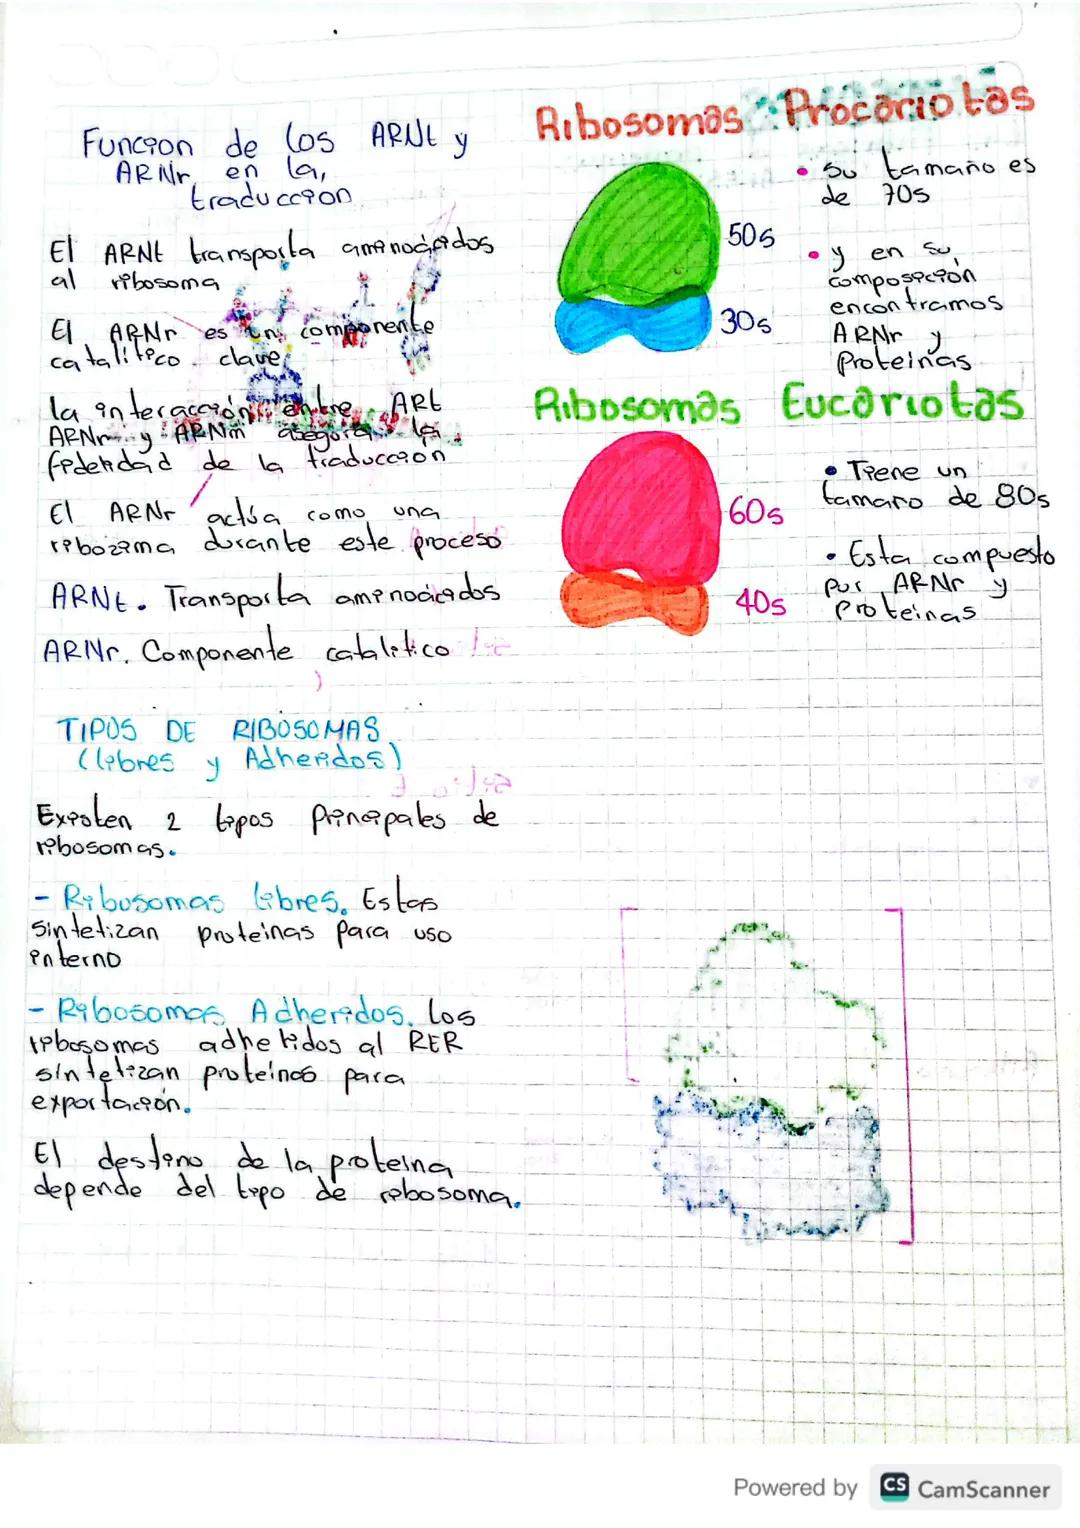 Función de los ARNt y
ARNr en la,
traducción
El ARNt transporta aminoácidos
al ribosoma
El ARNr es un componente
catalítico clave
la interacción entre ARt
ARNr y ARNm asegura la
fidelidad de la traducción
El ARNr actúa como una
ribozima durante este proceso
ARNt. Transporta aminoácidos
ARNr. Componente catalítico
TIPOS DE RIBOSOMAS
(libres y Adheridos)
Existen 2 tipos principales de
ribosomas.
- Ribosomas libres. Estas
sintetizan proteínas para uso
interno
- Ribosomas Adheridos. los
ribosomas adheridos al RER
sintetizan proteínas para
exportación.
El destino de la proteína
depende del tipo de ribosoma.
Ribosomas Procariotas
• Su tamaño es
de 70s
50s
30s
• y en su,
composición
encontramos
ARNr y
Proteínas
Ribosomas Eucariotas
• Tiene un
tamaro de 80s
60s
40s
• Esta compuesto
por ARNr y
Proteínas
Powered by CS CamScanner